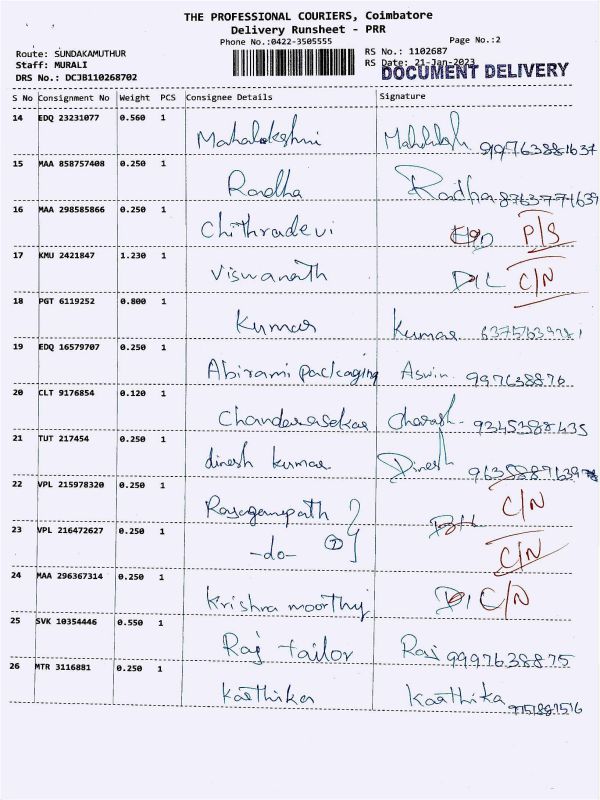 THE PROFESSIONAL COURIERS, Coimbatore
Delivery Runsheet - PRR
Phone No.:0422-3505555 Page No.:2
Route: SUNDAKAMUTHUR RS No.: 1102687
Staff: MURALI RS Date: 21-Jan-2023
DRS No.: DCJB110268702 DOCUMENT DELIVERY
S No Consignment No Weight PCS Consignee Details Signature
14 EDQ 23231077 0.560 1
Mahalakshmi
15 MAA 858757408 0.250 1
Radha Radha 8763771639
16 MAA 298585866 0.250 1
Chithradevi P/S
17 KMU 2421847 1.230 1
Viswanath D/L C/N
18 PGT 6119252 0.800 1
Kumar Kumar
19 EDQ 16579707 0.250 1
Abirami packaging Aswin. 997638876
20 CLT 9176854 0.120 1
Chandrasekar
21 TUT 217454 0.250 1
dinesh kumar Dinesh
22 VPL 215978320 0.250 1
C/N
23 VPL 216472627 0.250 1
-do- 2 C/N
24 MAA 296367314 0.250 1
Krishna moorthy C/N
25 SVK 10354446 0.550 1
Raj tailor Raj 9997638875
26 MTR 3116881 0.250 1
Karthika Karthika